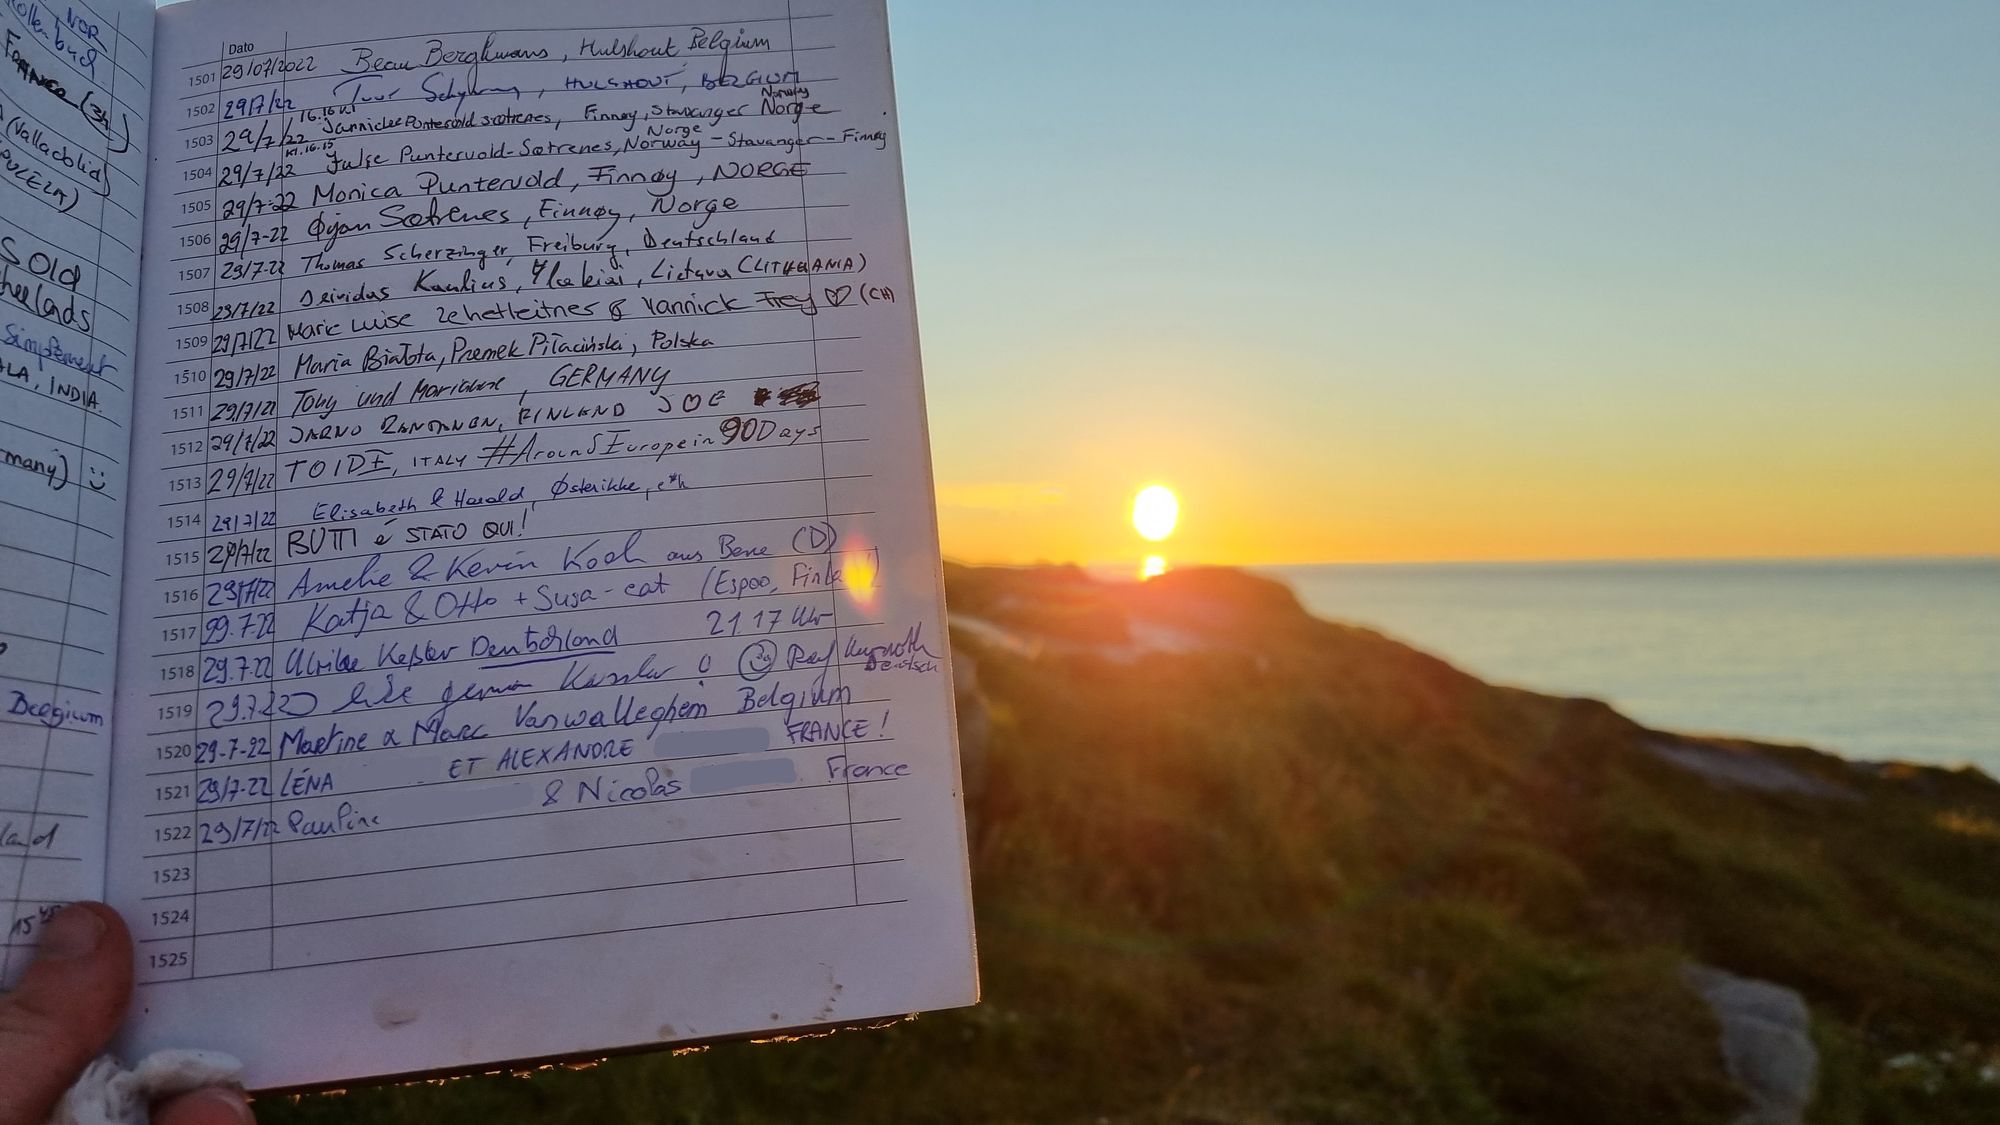 NOR
FRANCE (34)
(Valladolid)
SOLA
Simplement
ALA, INDIA.
many) :)
Belgium
land
15 45
Dato
1501 29/07/2022 Beau Bergkmans, Hulshout, Belgium
1502 29/7/22 Tuur, HULSHOUT, BELGIUM
1503 29/7/22 16.16 Jannicke Puntervold Sœtrenes, Finnøy, Stavanger Norge Norway
1504 29/7/22 kl.16.15 Julie Puntervold-Sœtrenes, Norge Norway - Stavanger - Finnøy
1505 29/7-22 Monica Puntervold, Finnøy, NORGE
1506 29/7-22 Ørjan Sœtrenes, Finnøy, Norge
1507 29/7-22 Thomas Scherzinger, Freiburg, Deutschland
1508 29/7/22 Deividas Kaulius, Ylakiai, Lietuva (LITHUANIA)
1509 29/7/22 Marie Luise Zehetleitner & Yannick Frey ♡ (CH)
1510 29/7/22 Maria Białota, Przemek Piłaciński, Polska
1511 29/7/22 Tony und Marianne, GERMANY
1512 29/7/22 JARNO RANTANEN, FINLAND JOE
1513 29/7/22 TOIDE, ITALY #AroundEuropein90Days
1514 29/7/22 Elisabeth & Harald, Østerikke, e*h
1515 29/7/22 BUTTI é STATO QUI!
1516 29/7/22 Amelie & Kevin Koch aus (D)
1517 29.7.22 Katja & Otto + Susa-cat (Espoo, Finland)
1518 29.7.22 Ulrike Keßler Deutschland 21 17 Uhr
1519 29.7.22 Kessler ! Ralf Deutsch
1520 29-7-22 Martine & Marc Vanwalleghem Belgium
1521 29/7-22 LÉNA ET ALEXANDRE FRANCE !
1522 29/7/22 Pauline & Nicolas France
1523
1524
1525